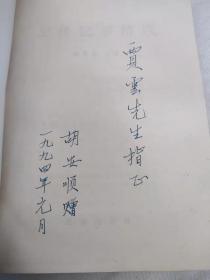 賈雲先生指正
胡安順贈
一九九四年元月